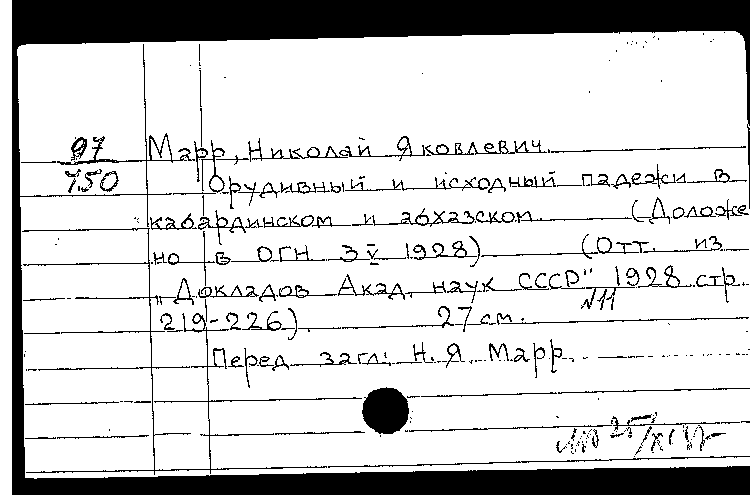 97
750
Марр, Николай Яковлевич.
Орудивный и исходный падежи в
кабардинском и абхазском. (Доложе
но в ОГН 3 V 1928) (Отт. из
„Докладов Акад. наук СССР" 1928 стр.
N11
219-226). 27 см.
Перед загл: Н. Я. Марр.